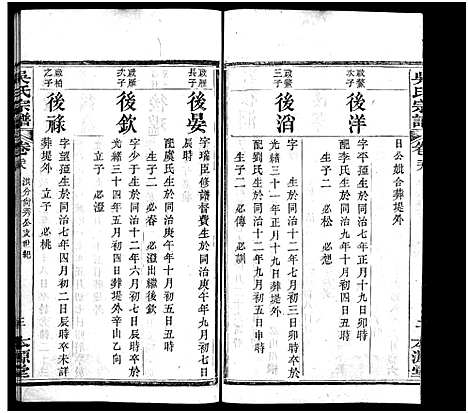 吳氏宗譜
卷
三
本源堂
日公娥合葬堤外
啟鰲次子
後洋
字平蘊生於同治七年正月十九日卯時
配李氏生於同治九年正月十九日戌時
生子二 必松 必想
啟鰲三子
後消
光緒三十一年正月十九日葬堤外
配劉氏生於同治十二年五月初五日申時
生子二 必傳 必訓
啟雁長子
後晏
字瑞臣修譜督費生於同治庚午年九月初七日
辰時
配虞氏生於同治庚申年十月初五日丑時
生子二 必春 必澄出繼後欽
啟雁次子
後欽
字少于生於同治十二年六月初三日巳時
光緒三十四年五月初四日葬堤外辛山乙向
立子 必澄
啟柏之子
後祿
字望蒞生於同治九年四月初二日辰時卒未詳
葬堤外 立子 必桃
吳氏宗譜
卷
漢分尚秀公支世紀
三
本源堂